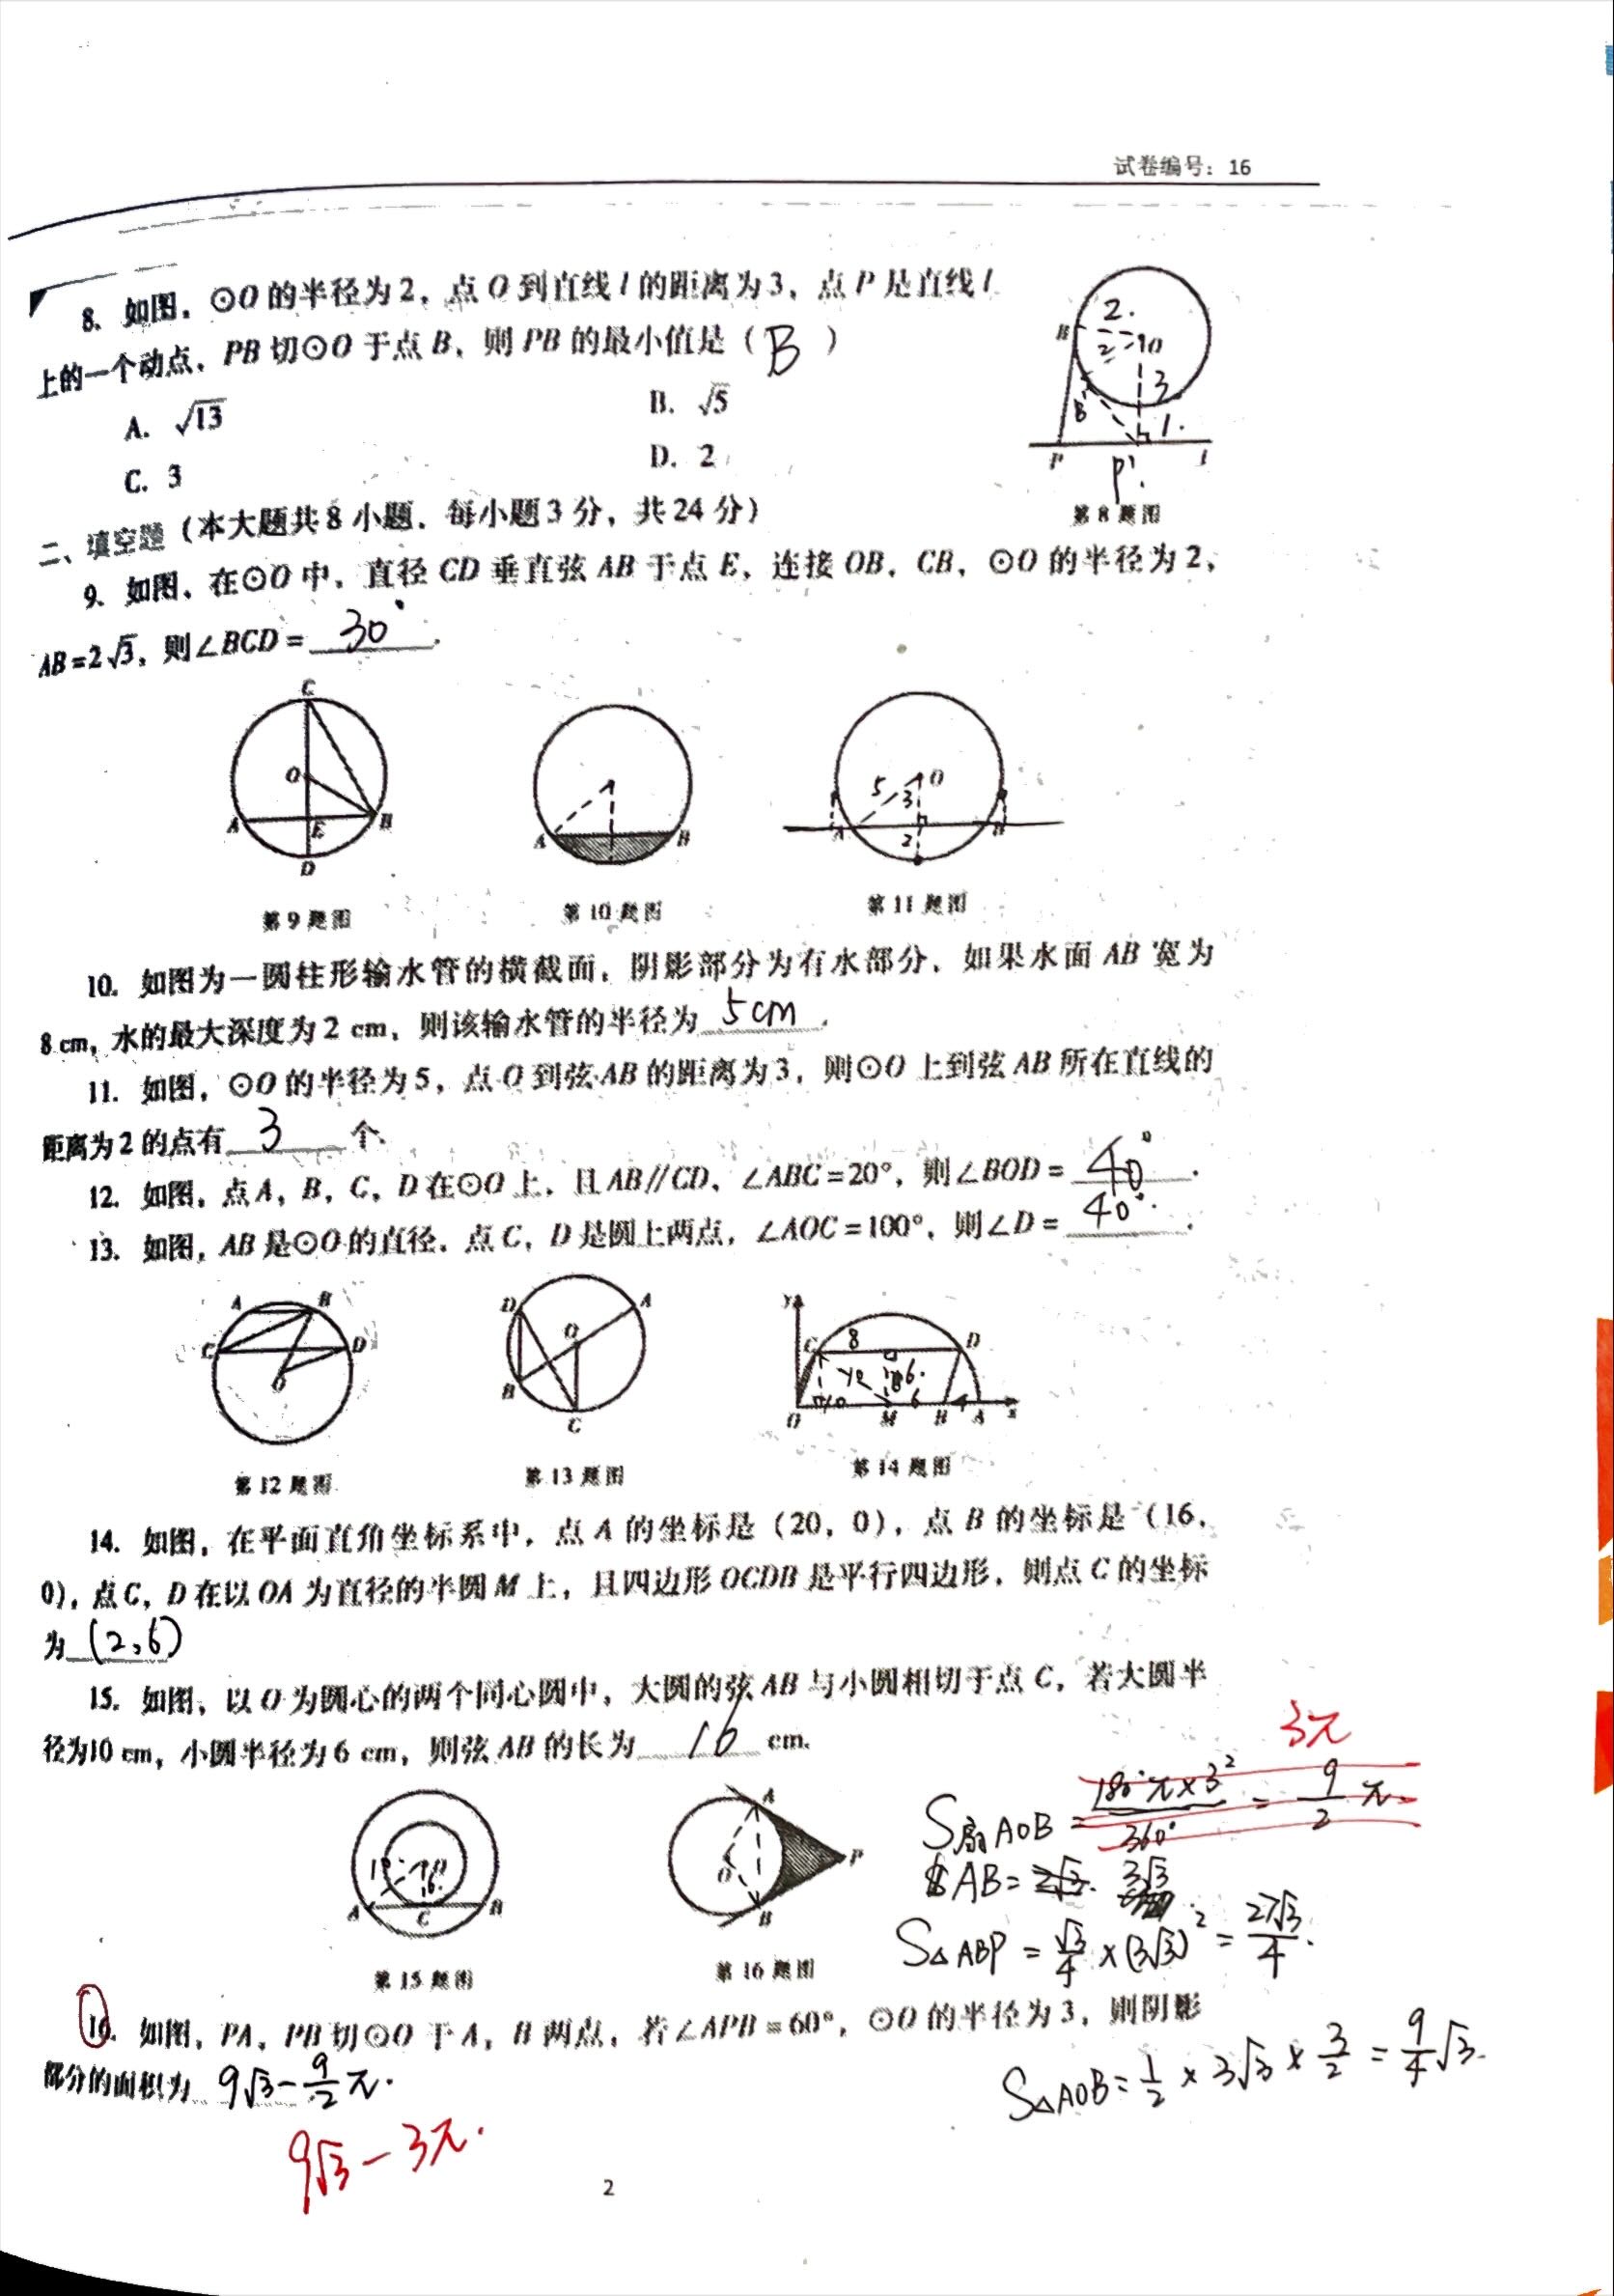 试卷编号：16
8. 如图，⊙O的半径为2，点O到直线l的距离为3，点P是直线l
上的一个动点，PB切⊙O于点B，则PB的最小值是（ B ）
A. √13
B. √5
C. 3
D. 2
2.
B
2
O
3
B'
1.
P
P'
l
第8题图
二、填空题（本大题共8小题．每小题3分，共24分）
9. 如图，在⊙O中，直径CD垂直弦AB于点E，连接OB，CB，⊙O的半径为2，
AB=2√3，则∠BCD= 30° .
C
O
A
E
B
D
第9题图
A
B
第10题图
5
3
O
A
2
B
第11题图
10. 如图为一圆柱形输水管的横截面，阴影部分为有水部分，如果水面AB宽为
8 cm，水的最大深度为2 cm，则该输水管的半径为 5cm .
11. 如图，⊙O的半径为5，点O到弦AB的距离为3，则⊙O上到弦AB所在直线的
距离为2的点有 3 个.
12. 如图，点A，B，C，D在⊙O上，且AB∥CD，∠ABC=20°，则∠BOD= 40° .
13. 如图，AB是⊙O的直径．点C，D是圆上两点，∠AOC=100°，则∠D= 40° .
A
B
C
D
O
第12题图
D
A
O
B
C
第13题图
y
C
8
D
6.
O
M
6
B
A
x
第14题图
14. 如图，在平面直角坐标系中，点A的坐标是（20，0），点B的坐标是（16，
0），点C，D在以OA为直径的半圆M上，且四边形OCDB是平行四边形，则点C的坐标
为 (2,6)
15. 如图，以O为圆心的两个同心圆中，大圆的弦AB与小圆相切于点C，若大圆半
径为10 cm，小圆半径为6 cm，则弦AB的长为 16 cm.
3π
S扇AOB = 180°π×3²/360° = 9/2 π.
AB= 2√3. 3√3
S△ABP = √3/4 ×(3√3)² = 27√3/4 .
10
O
6
A
C
B
第15题图
A
O
P
B
第16题图
16. 如图，PA，PB切⊙O于A，B两点，若∠APB=60°，⊙O的半径为3，则阴影
部分的面积为 9√3 - 9/2 π.
S△AOB = 1/2 × 3√3 × 3/2 = 9/4 √3.
9√3 - 3π.
2